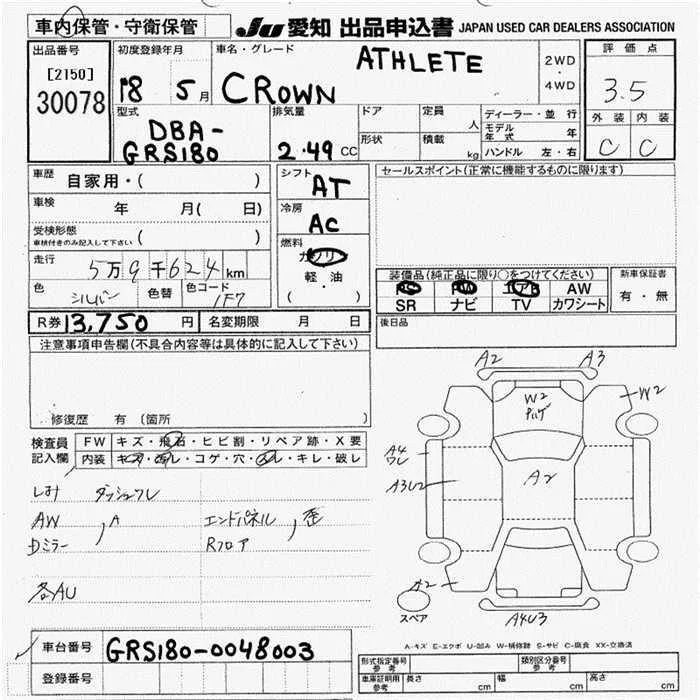 車内保管・守衛保管
JU 愛知 出品申込書 JAPAN USED CAR DEALERS ASSOCIATION
出品番号
[2150]
30078
初度登録年月
18 5月
車名・グレード
CROWN ATHLETE
2WD
・
4WD
評価点
3.5
外装 内装
C C
型式
DBA-
GRS180
排気量
2.49 CC
ドア
形状
定員 人
積載 kg
ディーラー・並行
モデル年式 年
ハンドル 左・右
車歴 自家用・( )
車検 年 月( 日)
受検形態
車検付きのみ記入して下さい ( )
走行 5万9千624km
色 シルバー 色替 色コード 1F7
シフト AT
冷房 AC
燃料
ガソリン
軽・油
( ・ )
セールスポイント(正常に機能するものに限ります)
装備品(純正品に限り○をつけてください)
PS PW エアB AW
SR ナビ TV カワシート
新車保証書
有・無
R券 13,750 円 名変期限 月 日
後日品
注意事項申告欄(不具合内容等は具体的に記入して下さい)
修復歴 有 (箇所 )
検査員記入欄
FW キズ・飛石・ヒビ割・リペア跡・X要
内装 キズ・汚レ・コゲ・穴・スレ・キレ・破レ
しみ ダッシュワレ
AW , A エンドパネル , 歪
Dミラー Rフロア
各AU
A2 A3
W2 W2
A4
ワレ
A3U2 A2
A2
A4U3
スペア
車台番号 GRS180-0048003
登録番号
A-キズ E-エクボ U-凹み W-補修跡 S-サビ C-腐食 XX-交換済
形式指定番号 参考 類別区分番号 参考
車庫証明用 参考 長さ cm 幅 cm 高さ cm